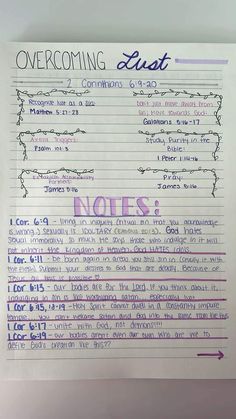 OVERCOMING Lust
1 Corinthians 6:9-20
Recognize lust as a sin:
Matthew 5:27-28
Don't just move away from
sin; move towards God:
Galatians 5:16-17
Avoid Triggers:
Psalm 101:3
Study Purity in the
Bible:
1 Peter 1:14-16
Accountability
Partners:
James 5:16
Pray:
James 5:16
NOTES:
1 Cor. 6:9 - living in iniquity (habitual sin that you acknowledge
is wrong.) Sexually is VOLUNTARY God hates
sexual immorality so much he says those who indulge in it will
not inherit the Kingdom of Heaven. God HATES
1 Cor. 6:11 - be born again in areas you still sin in (crucify it with
the flesh) Submit your desires to God that are deadly. Because of
Jesus, all this is possible!
1 Cor. 6:13 - our bodies are for the Lord. If you think about it,
indulging in sin is like worshiping satan... especially lust
1 Cor 6:15, 18-19 - Holy Spirit cannot dwell in a constantly impure
temple... you can't release satan and God into the same
1 Cor. 6:17 - unite with God, not demons!!!!
1 Cor. 6:19 - our bodies aren't even our own who are we to
defile God's creation like this??